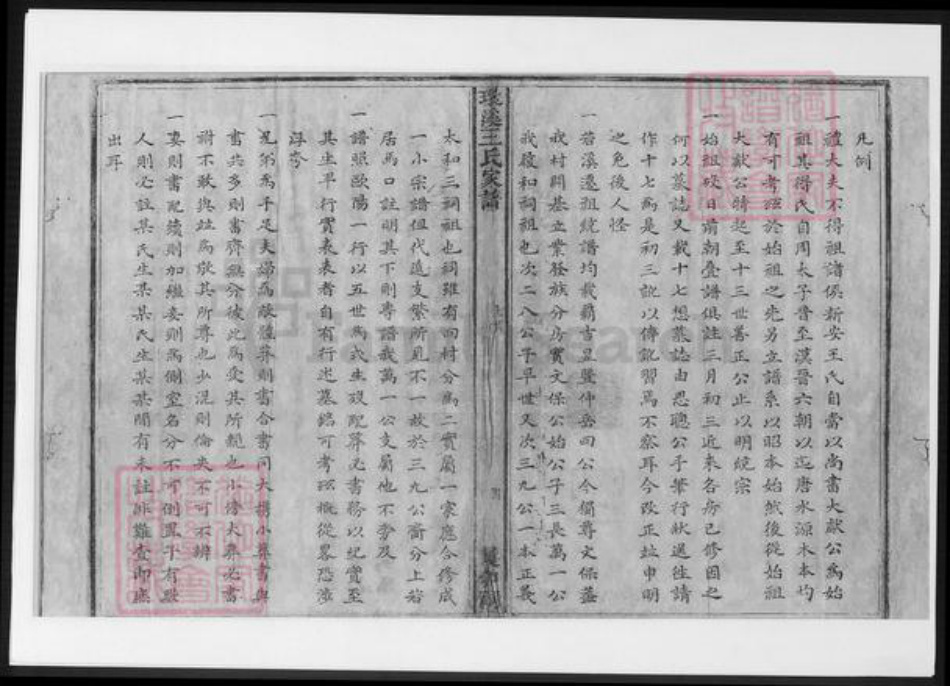 凡例
一禮大夫不得祖諸侯新安王氏自當以尚書大獻公為始
祖其得氏自周太子晉至漢晉六朝以迄唐水源木本均
有可考茲於始祖之先另立譜系以昭本始然後從始祖
大獻公時起至十三世善正公止以明統宗
一始祖歿日前朝臺譜俱註三月初三近來各房已修因之
何以墓誌又載十七想墓誌由思聰公手筆行狀過徃請
作十七為是初三訛以傳訛習焉不察耳今改正並申明
之免後人怪
一若溪遷祖統譜均載 仲岳 公今獨尊文保蓋
我村開基立業發族分房實文保公始公子三長萬一公
我發和祠祖也次二八公早世又次三九公一本正義
太和三祠祖也祠雖有四村分為二實屬一家應合修成
一小宗譜但代遠支繁所見不一故於三九公裔分上若
居馬口註明其下則專譜我萬一公支屬他不旁及
一譜照歐陽一行以五世為式生歿配葬必書務以紀實至
其生平行實表表者自有行述墓銘可考茲概從畧恐涉
浮夸
一兄弟為手足夫婦為敵體葬則書合書同大擕小葬書與
書共多則書齊無分彼此為愛其所親也小傍大葬必書
祔不敢與並為敬其所尊也少混則倫失不可不辨
一妻則書配續則加繼妾則為側室名分不可倒置子有
人則必註某氏生某某氏生某某間有未註誹難查即
出耳
環溪王氏家譜